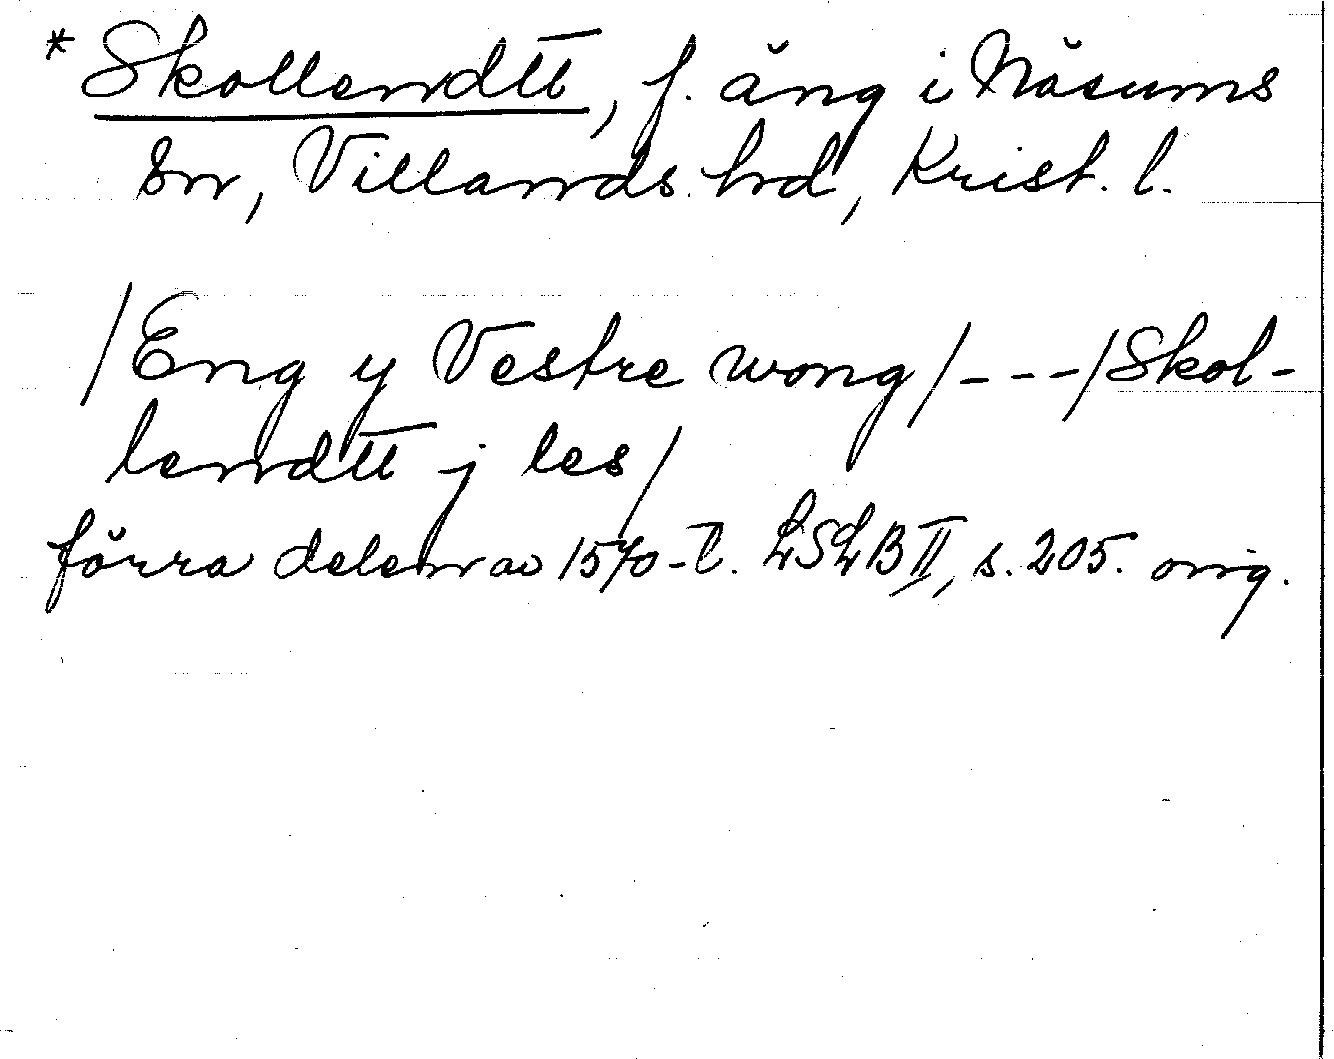 *Skollendtt, f. äng i Näsums
sn, Villands hd, Krist. l.
/Eng y Vestre wong/---/Skol-
lendtt j les/
förra delen av 1570-t. LSLB II, s. 205. orig.